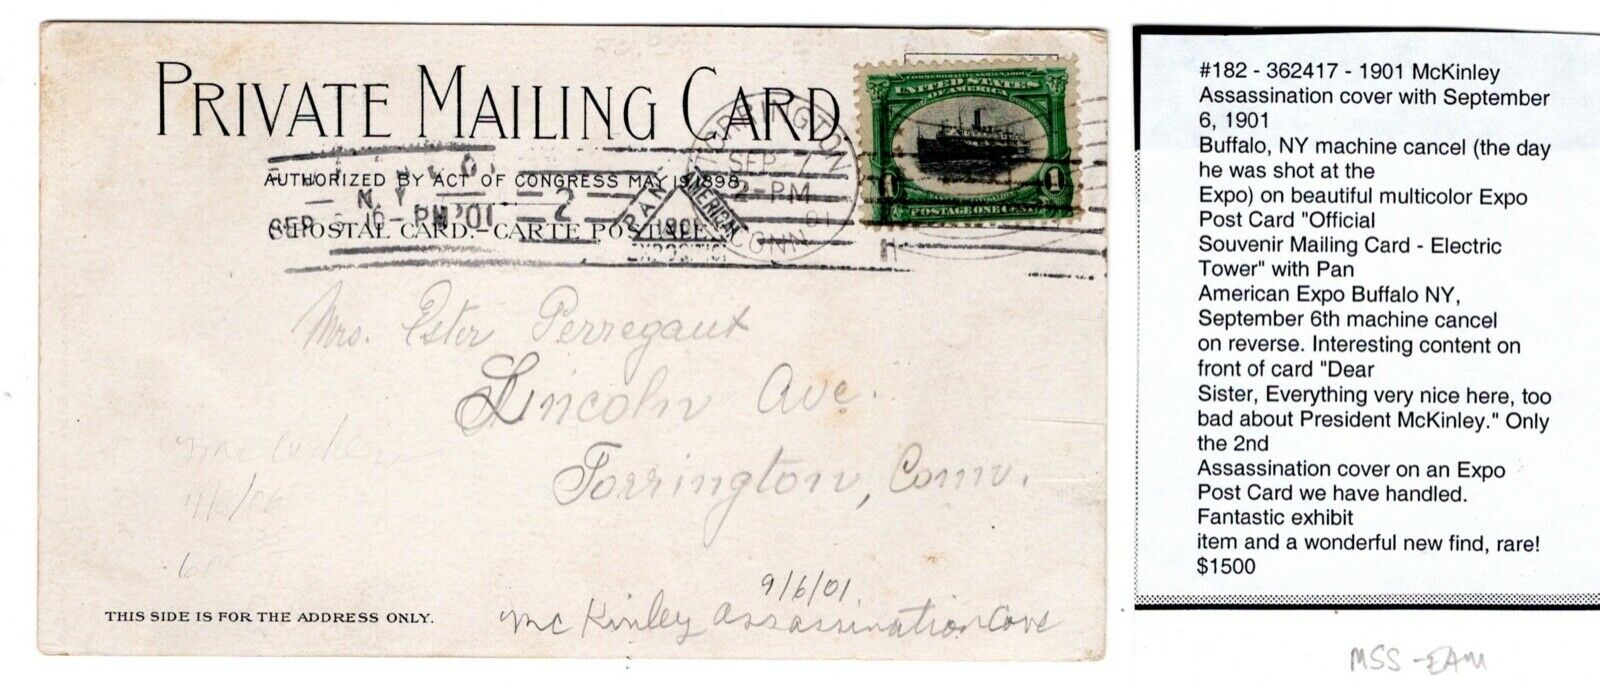 PRIVATE MAILING CARD
AUTHORIZED BY ACT OF CONGRESS MAY 19, 1898.
POSTAL CARD.—CARTE POSTALE.
N.Y.
SEP 6 6-PM '01 2
PAN AMERICAN
1901
EXPOSITION
TORRINGTON
SEP 7
2-PM
01
CONN.
COMMEMORATIVE SERIES 1901
UNITED STATES
OF AMERICA
1 1
POSTAGE ONE CENT
Mrs. Ester Perregaux
Lincoln Ave.
Torrington, Conn.
9/6/01
McKinley Assassination Cove
THIS SIDE IS FOR THE ADDRESS ONLY.
#182 - 362417 - 1901 McKinley
Assassination cover with September
6, 1901
Buffalo, NY machine cancel (the day
he was shot at the
Expo) on beautiful multicolor Expo
Post Card "Official
Souvenir Mailing Card - Electric
Tower" with Pan
American Expo Buffalo NY,
September 6th machine cancel
on reverse. Interesting content on
front of card "Dear
Sister, Everything very nice here, too
bad about President McKinley." Only
the 2nd
Assassination cover on an Expo
Post Card we have handled.
Fantastic exhibit
item and a wonderful new find, rare!
$1500
MSS - EAM